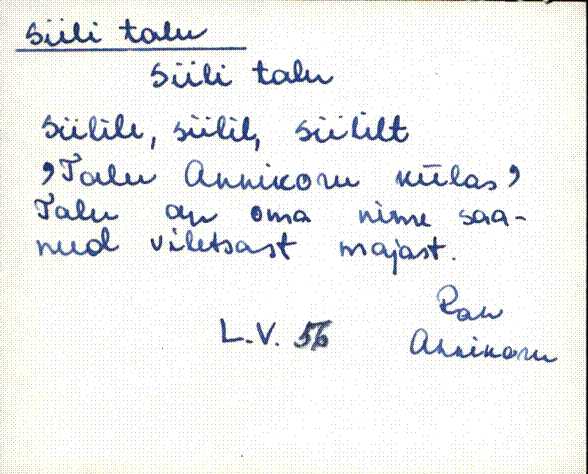 siili talu
siili talu
siilile, siilil, siililt
,Talu Annikoru külas,
Talu on oma nime saa-
nud viletsast majast.
Ran
L.V. 56
Annikoru